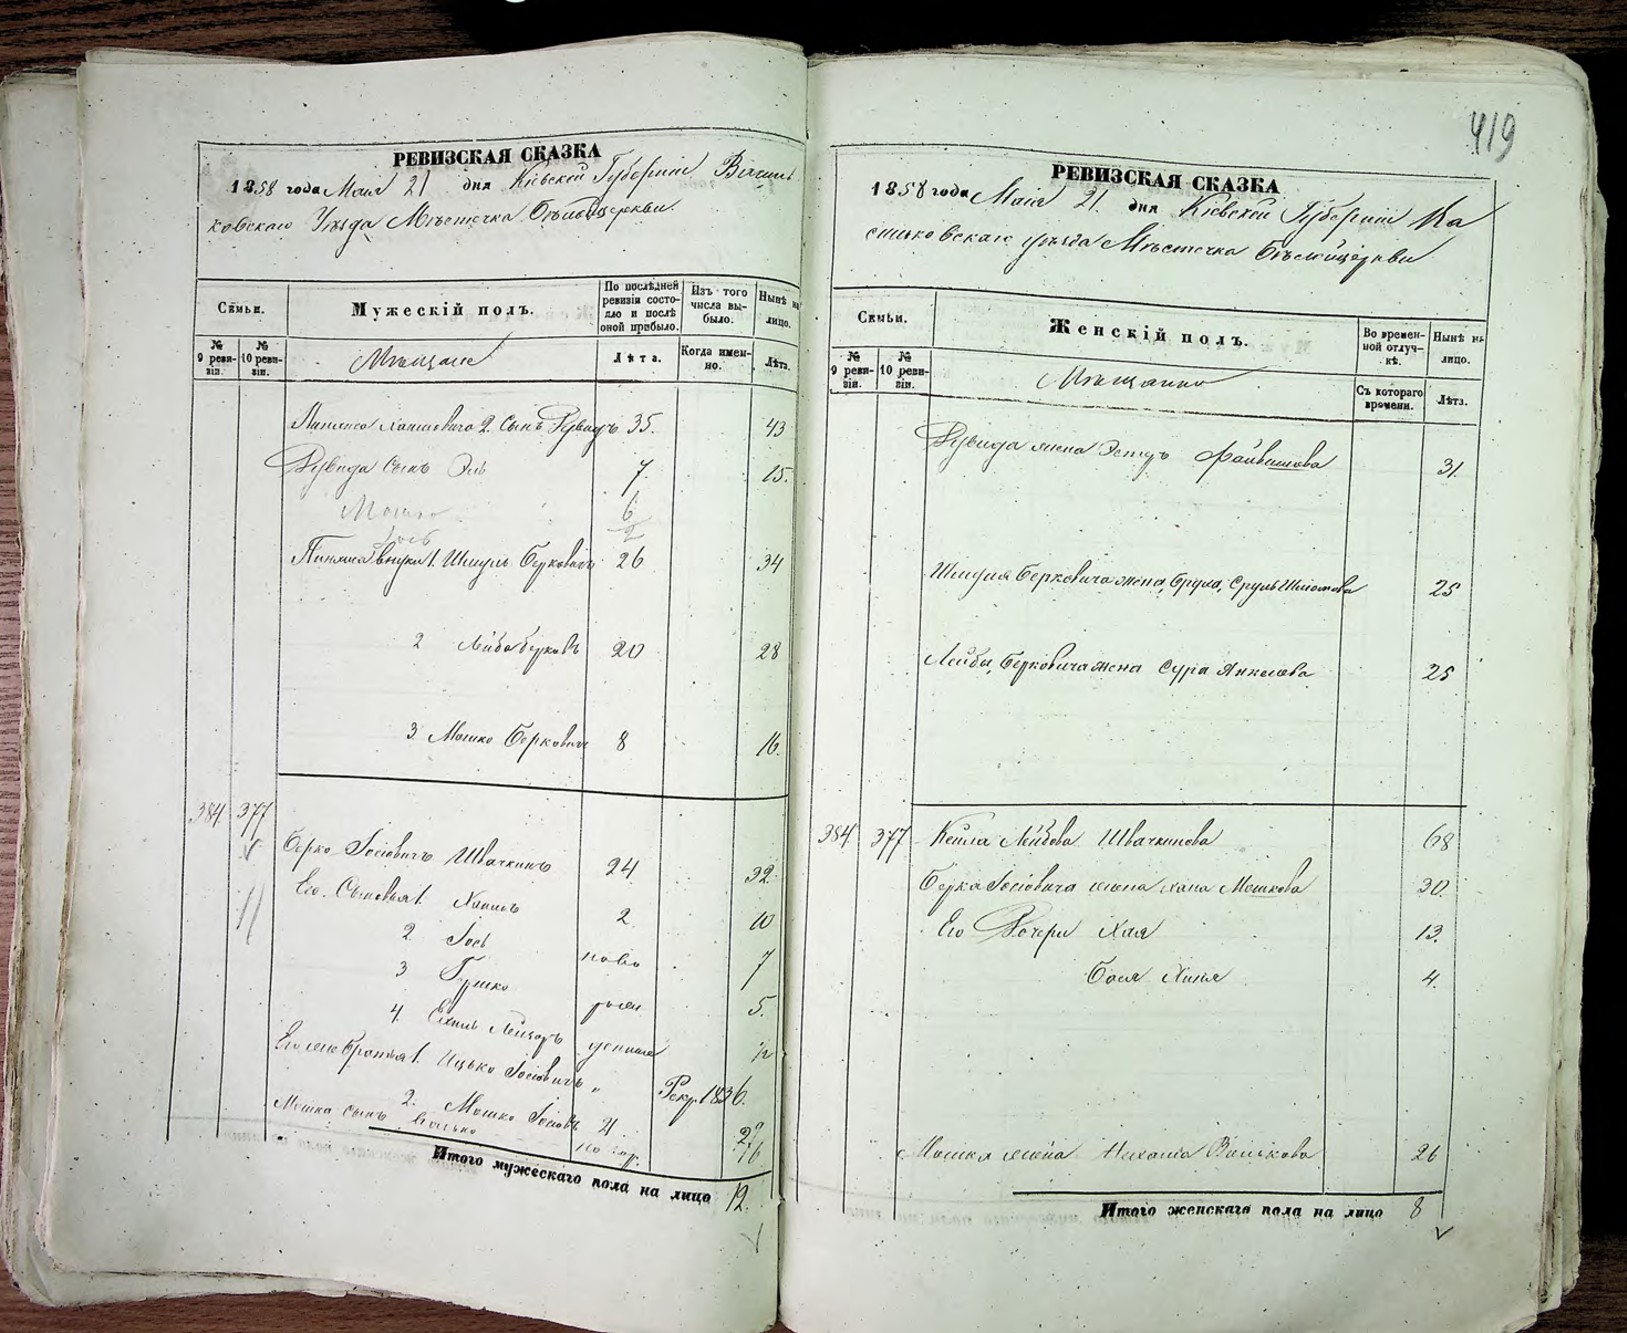 419
РЕВИЗСКАЯ СКАЗКА
1858 года Мая 21 дня Кіевской Губерніи Василь
ковскаго Уѣзда Мѣстечка Бѣлойцеркви.
Семьи.
№ 9 ревизіи.
№ 10 ревизіи.
Мужескій полъ.
Мѣщане
По послѣдней ревизіи состояло и послѣ оной прибыло.
Лѣта.
Изъ того числа выбыло.
Когда именно.
Нынѣ на лицо.
Лѣта.
Хаимовича 2. Сынъ Дувидъ 35. 43
Дувида Сынъ Эль 7. 15.
Мошко 6
Іось 2
внуки 1. Шмуль Берковичъ 26 34
2 Лейба Берковъ 20 28
3. Мошко Берковичъ 8 16.
384 377
Берко Іосіовичъ Швачкинъ 24 32.
Его Сыновья 1. Хаимъ 2 10
2 Іось ново 7
3 Гершко рожден 5.
4. Лейзоръ
Его же братья 1. Ицько Іосіовичъ " Рекр. 1836.
2. Мошко Іосіовъ 21 29
Мошка сынъ
Итого мужескаго пола на лицо 12.
РЕВИЗСКАЯ СКАЗКА
1858 года Мая 21. дня Кіевской Губерніи Ва
сильковскаго уѣзда Мѣстечка Бѣлойцеркви
Семьи.
№ 9 ревизіи.
№ 10 ревизіи.
Женскій полъ.
Мѣщанки
Во временной отлучкѣ.
Съ котораго времени.
Нынѣ на лицо.
Лѣта.
Дувида жена Эстеръ Файвишова 31.
Шмуля Берковича жена, Бруха, Сруль Шліомова 25
Лейбы Берковича жена Сура Янкелева 25
384 377 Кейла Лейбова Швачкинова 68
Берка Іосіовича жена Хана Мошкова 30.
Его Дочери Хая 13.
Бася Хиня 4.
Мошка жена Нехама Волькова 26
Итого женскаго пола на лицо 8